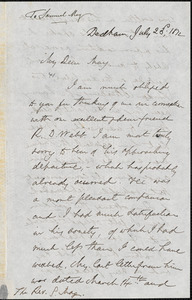 To Samuel May
Dedham, July 26th 1872
My Dear May
I am much obliged
to you for thinking of me in connexion
with our excellent friend
R. D. Webb. I am most truly
sorry to hear of his approaching
departure, which has probably
already occurred. He was
a most pleasant companion
and I had much satisfaction
in his society, of which I had
much less than I could have
wished. My last letter from him
was dated March 14th and
The Rev. S. May.